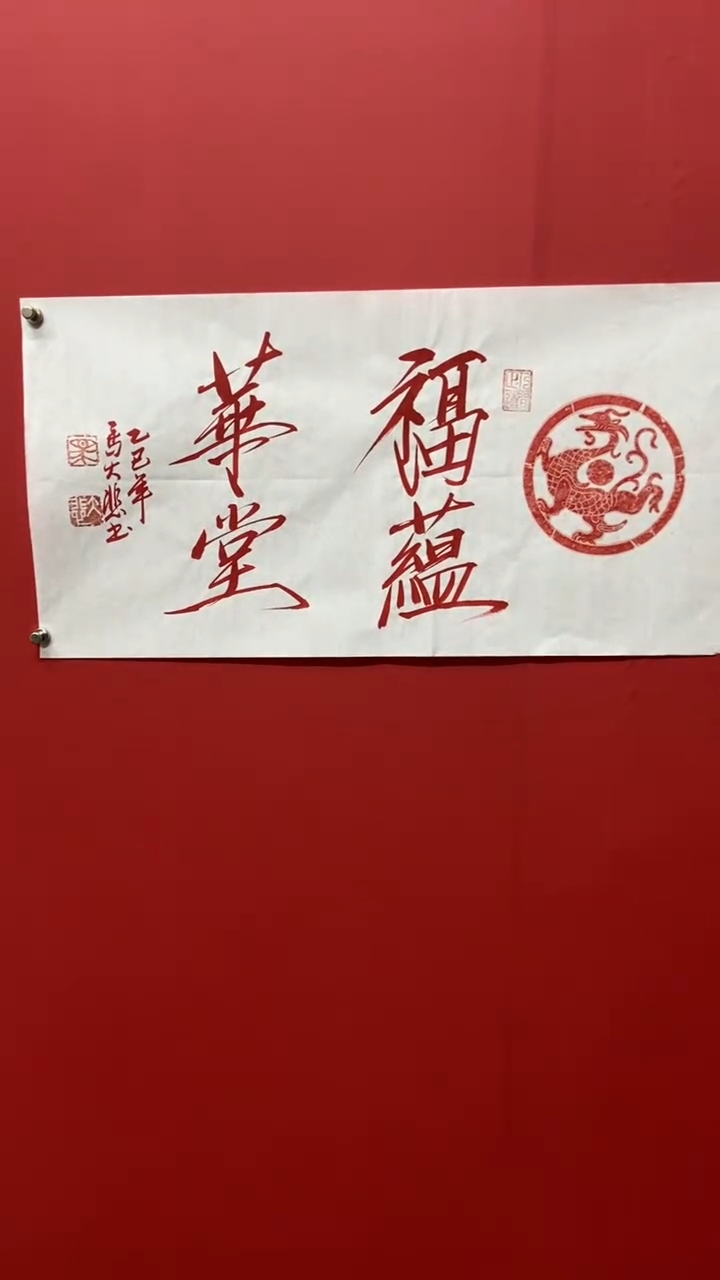 福蘊
華堂
乙巳年
馬大悲书